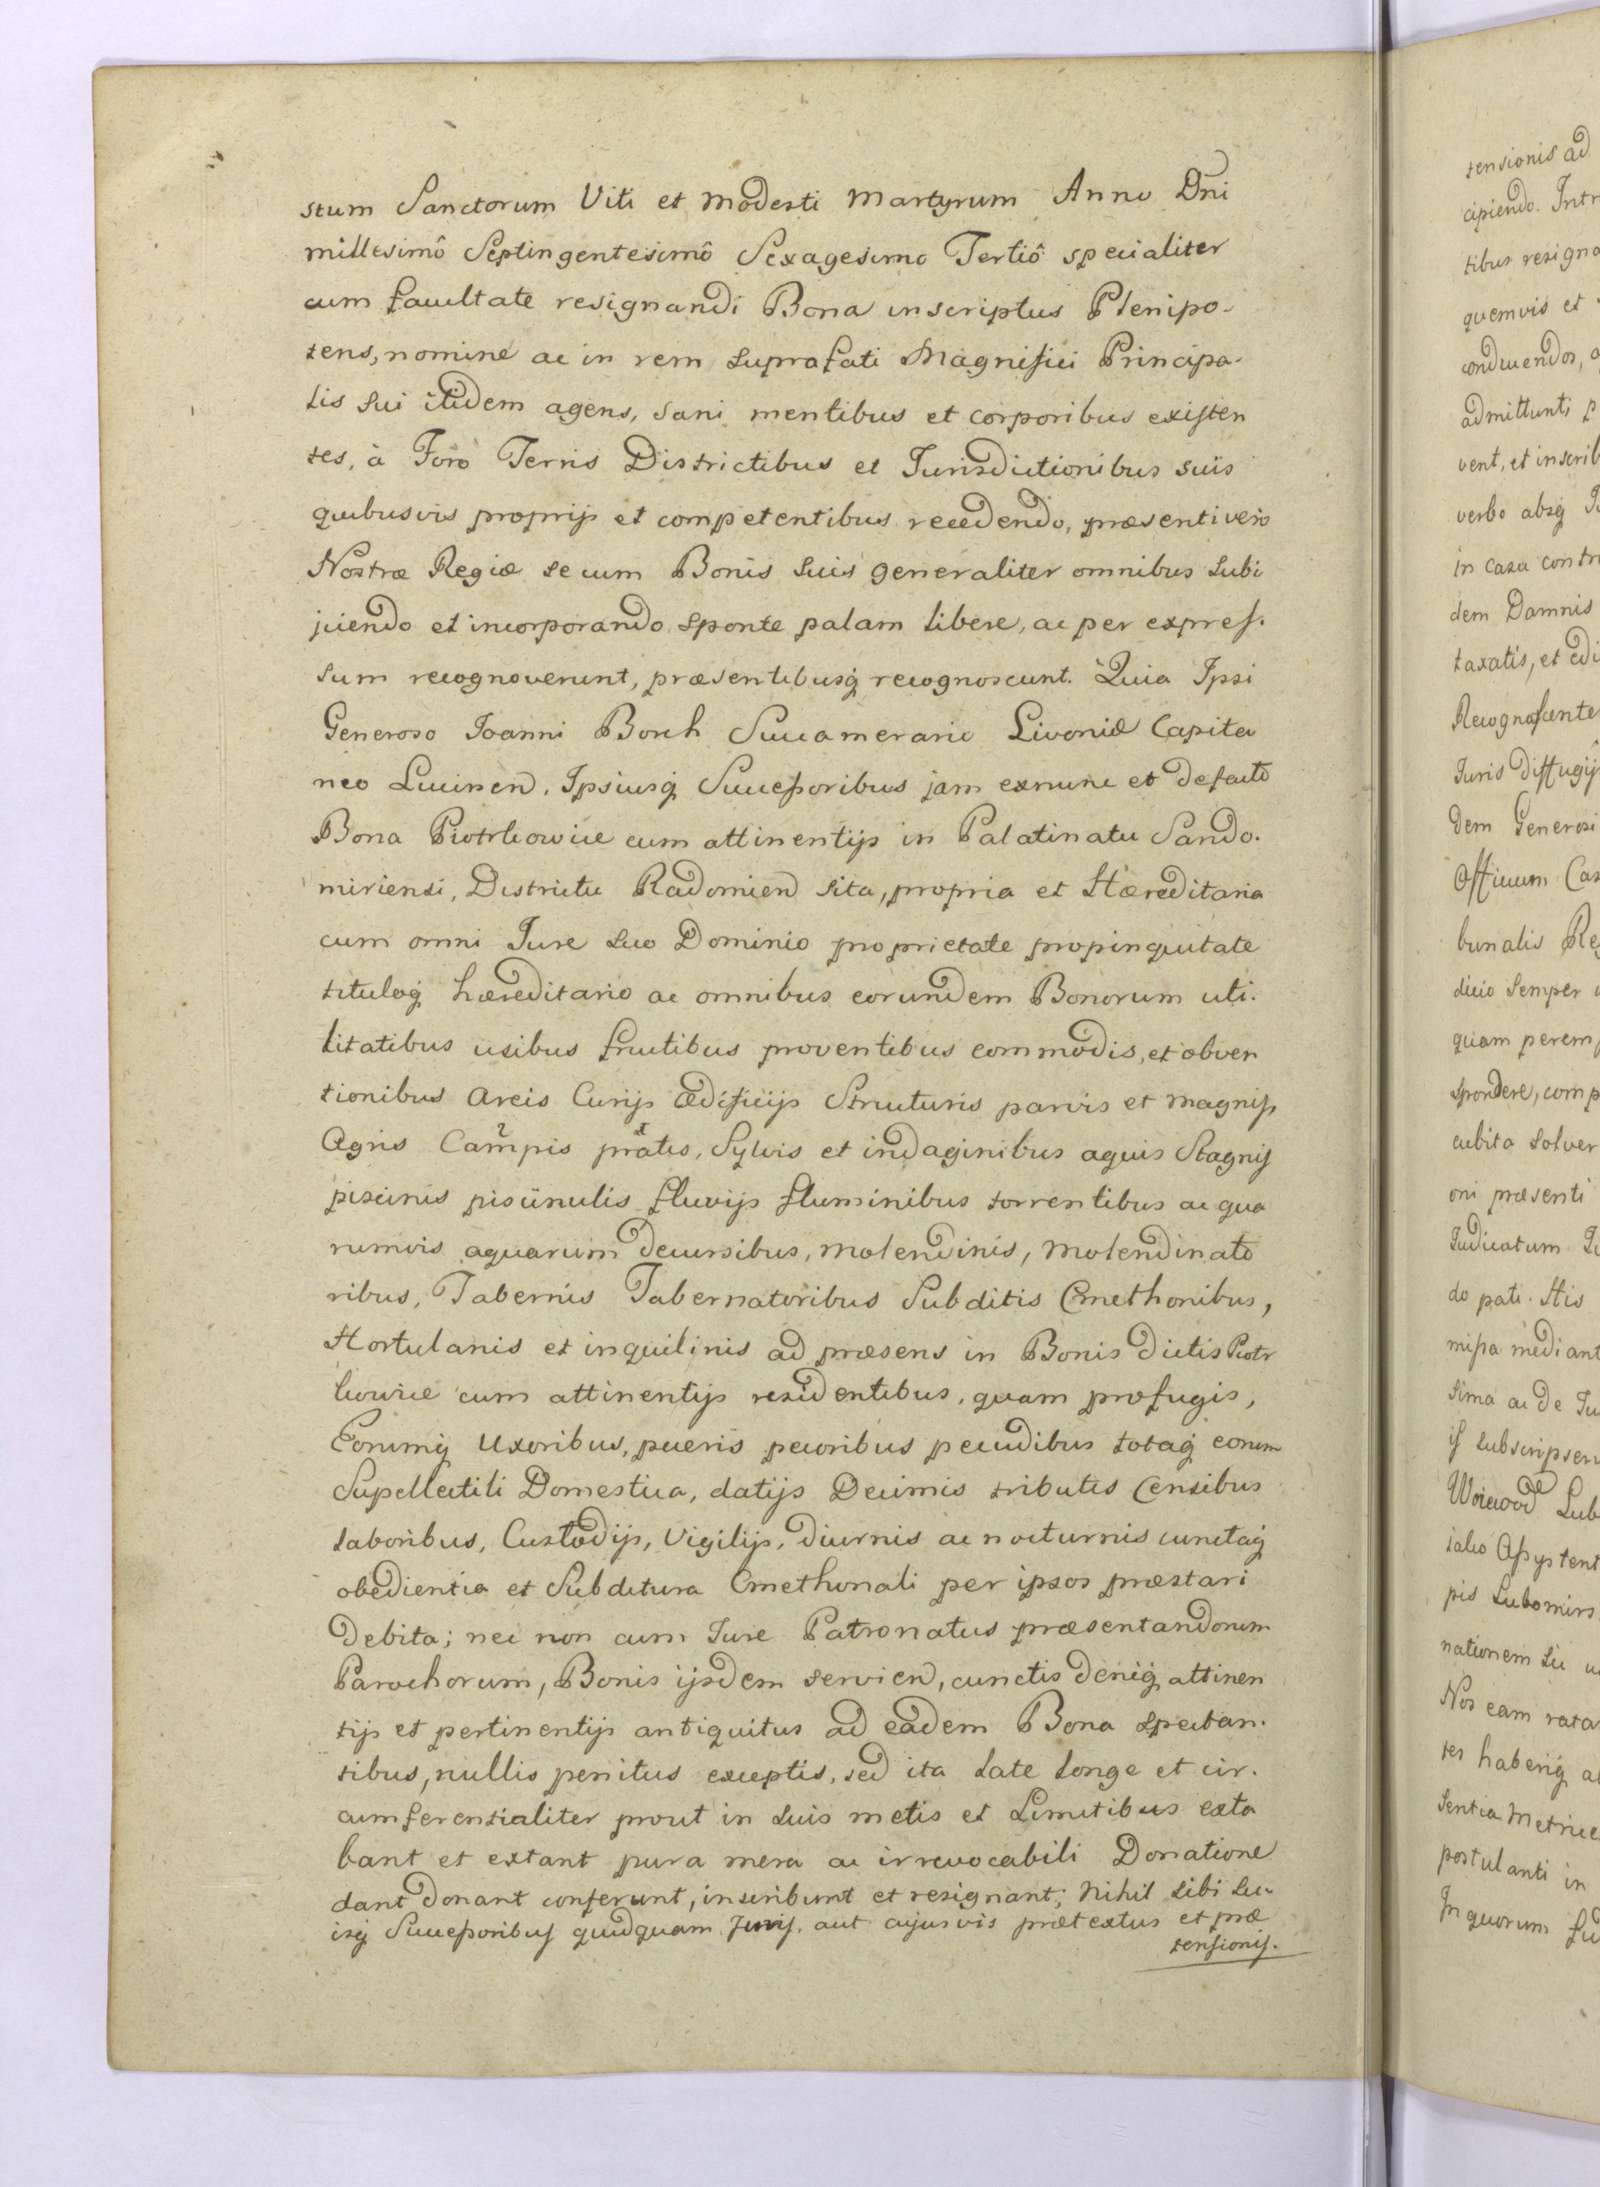 stum Sanctorum Viti et Modesti Martyrum Anno Dni
millesimô Septingentesimô Sexagesimo Tertiô specialiter
cum facultate resignandi Bona inscriptus Plenipo-
tens, nomine ac in rem suprafati Magnifici Principa-
lis sui itidem agens, sani mentibus et corporibus existen
tes, à Foro Terris Districtibus et Jurisdictionibus suis
quibusvis proprijs et competentibus recedendo, præsenti vero
Nostræ Regiæ se cum Bonis suis generaliter omnibus subi
jciendo et incorporando sponte palam libere, ac per expres-
sum recognoverunt, præsentibusq recognoscunt. Quia Ipsi
Generoso Joanni Borch Succamerario Livoniæ Capita
neo Lucinen, Ipsiusq Successoribus jam exnunc et defacto
Bona Piotrkowice cum attinentijs in Palatinatu Sando-
miriensi, Districtu Radomien sita, propria et Hæreditaria
cum omni Jure suo Dominio proprietate propinquitate
tituloq hæreditario ac omnibus eorundem Bonorum uti-
litatibus usibus fructibus proventibus commodis, et obven
tionibus areis Curijs ædificijs Structuris parvis et magnis,
Agris Campis pratis, Sylvis et indaginibus aquis Stagnis
piscinis piscinulis fluvijs fluminibus torrentibus ac qua
rumvis aquarum decursibus, molendinis, molendinato
ribus, Tabernis Tabernatoribus Subditis Cmethonibus,
Hortulanis et inquilinis ad præsens in Bonis dictis Piotr
kowice cum attinentijs residentibus, quam profugis,
Eorumq Uxoribus, pueris pecoribus pecudibus totaq eorum
Supellectili Domestica, datijs Decimis tributis Censibus
laboribus, Custodijs, Vigilijs, diurnis ac nocturnis cunctaq
obedientia et Subditura Cmethonali per ipsos præstari
debita; nec non cum Jure Patronatus præsentandorum
Parochorum, Bonis ijsdem servien, cunctis deniq attinen
tijs et pertinentijs antiquitus ad eadem Bona spectan-
tibus, nullis penitus exceptis, sed ita late longe et cir-
cumferentialiter prout in suis metis et Limitibus exta
bant et extant pura mera ac irrevocabili Donatione
dant donant conferunt, inscribunt et resignant; Nihil sibi su-
isq Successoribus quidquam Juris, aut cujusvis prætextus et præ
tensionis.
tensionis ad
cipiendo. Intr
tibus resigna
quemvis et
conducendos, a
admittunti p
vent, et inscrib
verbo absq
in casu contr
dem Damnis
taxatis, et edi
Recognoscente
Juris diffugij
dem Generosi
Officium Cas
bunalis Reg
dicio semper
quam perem
spondere, comp
cubita solver
oni præsenti
Judicatum
do pati. His
missa mediant
sima ac de Ju
is subscripser
Woiewod Lub
talio Assystent
pis Lubomirs
nationem sic
Nos eam rata
tes haberiq
sentia Metrice
postulanti in
In quorum